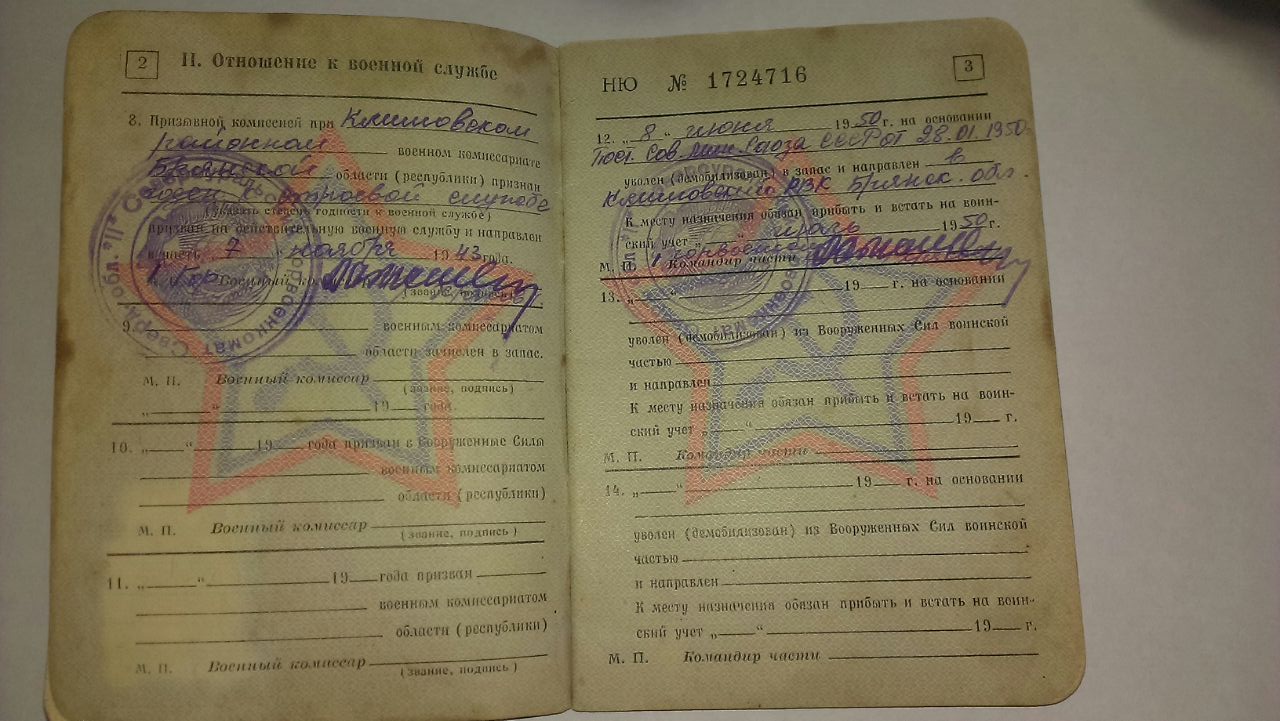 2
II. Отношение к военной службе
8. Призывной комиссией при Климовском
районном военном комиссариате
Брянской области (республики) признан
годен к строевой службе
(указать степень годности к военной службе)
призван на действительную военную службу и направлен
в часть „ 7 “ ноября 1943 года.
М. П. Военный
(звание, подпись)
9. военным комиссариатом
области зачислен в запас.
М. П. Военный комиссар
(звание, подпись)
„ “ 19 года
10. „ “ 19 года призван в Вооруженные Силы
военным комиссариатом
области (республики)
М. П. Военный комиссар
(звание, подпись)
11. „ “ 19 года призван
военным комиссариатом
области (республики)
М. П. Военный комиссар
(звание, подпись)
Свердл. обл. Горвоенкомат
НЮ № 1724716
3
12. „ 8 “ июня 1950 г. на основании
Пост. Сов. Мин. Союза ССР от 28.01.1950
уволен (демобилизован) в запас и направлен в
Климовский РВК Брянск. обл.
К месту назначения обязан прибыть и встать на воин-
ский учет „ “ июль 1950 г.
М. П. Командир части
13. „ “ 19 г. на основании
уволен (демобилизован) из Вооруженных Сил воинской
частью
и направлен
К месту назначения обязан прибыть и встать на воин-
ский учет „ “ 19 г.
М. П. Командир части
14. „ “ 19 г. на основании
уволен (демобилизован) из Вооруженных Сил воинской
частью
и направлен
К месту назначения обязан прибыть и встать на воин-
ский учет „ “ 19 г.
М. П. Командир части